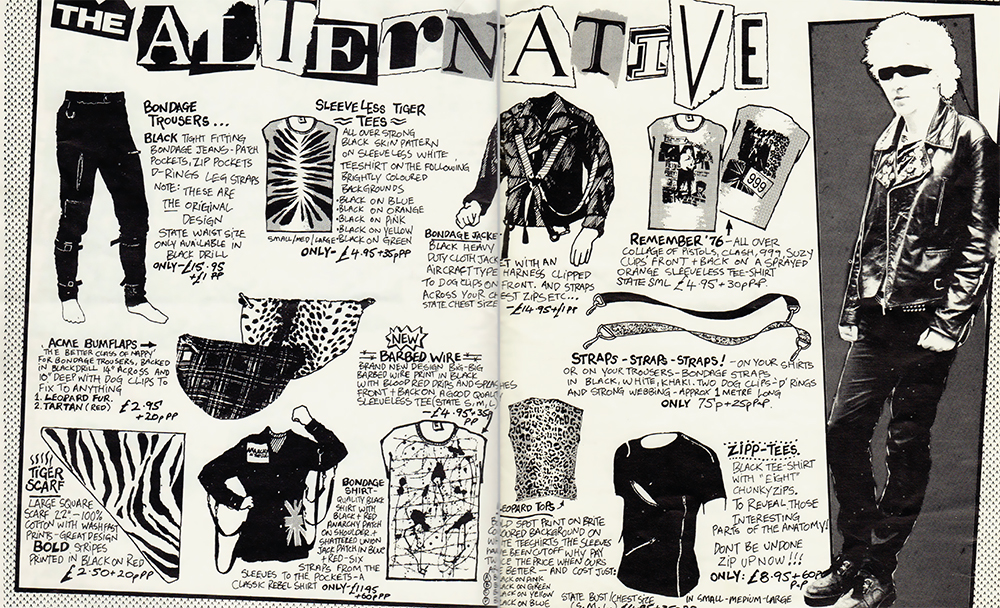 THE ALTERNATIVE
BONDAGE
TROUSERS...
BLACK TIGHT FITTING
BONDAGE JEANS-PATCH
POCKETS, ZIP POCKETS
D-RINGS LEG STRAPS
NOTE: THESE ARE
THE ORIGINAL
DESIGN
STATE WAIST SIZE
ONLY AVAILABLE IN
BLACK DRILL
ONLY-£15.95
+£1 PP
SLEEVELESS TIGER
TEES
ALL OVER STRONG
BLACK SKIN PATTERN
ON SLEEVELESS WHITE
TEESHIRT ON THE FOLLOWING
BRIGHTLY COLOURED
BACKGROUNDS
•BLACK ON BLUE
•BLACK ON ORANGE
•BLACK ON PINK
•BLACK ON YELLOW
•BLACK ON GREEN
SMALL/MED/LARGE
ONLY-£4.95+35pPP
BONDAGE JACKE
BLACK HEAVY
DUTY CLOTH JACKET WITH AN
AIRCRAFT TYPE HARNESS CLIPPED
TO DOG CLIPS ON FRONT. AND STRAPS
ACROSS YOUR CHEST ZIPS ETC...
STATE CHEST SIZE
-£14.95+£1 PP
999
REMEMBER '76-ALL OVER
COLLAGE OF PISTOLS, CLASH, 999, SUZY
CLIPS FRONT + BACK ON A SPRAYED
ORANGE SLEEVELESS TEE-SHIRT
STATE SML £4.95+30pP.P.
STRAPS-STRAPS-STRAPS!-ON YOUR SHIRTS
OR ON YOUR TROUSERS-BONDAGE STRAPS
IN BLACK, WHITE, KHAKI. TWO DOG CLIPS-'D' RINGS
AND STRONG WEBBING-APPROX 1 METRE LONG
ONLY 75p+25pP.P.
ACME BUMFLAPS
THE BETTER CLASS OF NAPPY
FOR BONDAGE TROUSERS, BACKED
IN BLACK DRILL 14" ACROSS AND
10" DEEP WITH DOG CLIPS TO
FIX TO ANYTHING
1. LEOPARD FUR.
2. TARTAN (RED)
£2.95
+20pPP
NEW
BARBED WIRE
BRAND NEW DESIGN BIG-BIG
BARBED WIRE PRINT IN BLACK
WITH BLOOD RED DRIPS AND SPLASHES
FRONT + BACK ON A GOOD QUALITY
SLEEVELESS TEE (STATE S, M, L)
-£4.95+35p
PP
TIGER
SCARF
LARGE SQUARE
SCARF 22"-100%
COTTON WITH WASHFAST
PRINTS-GREAT DESIGN
BOLD STRIPES
PRINTED IN BLACK ON RED
£2.50+20pPP
BONDAGE
SHIRT-
QUALITY BLACK
SHIRT WITH
BLACK + RED
ANARCHY PATCH
ON SHOULDER +
SHATTERED UNION
JACK PATCH IN BLUE
+ RED-SIX
STRAPS FROM THE
SLEEVES TO THE POCKETS-A
CLASSIC REBEL SHIRT ONLY-£11.95
+60pPP
LEOPARD TOPS
BOLD SPOT PRINT ON BRITE
COLOURED BACKGROUND ON
WHITE TEESHIRTS THE SLEEVES
HAVE BEEN CUT OFF WHY PAY
TWICE THE PRICE WHEN OURS
BETTER-AND COST JUST:
BLACK ON PINK
BLACK ON GREEN
BLACK ON YELLOW
BLACK ON BLUE
STATE BUST/CHEST SIZE
ZIPP-TEES.
BLACK TEE-SHIRT
WITH "EIGHT"
CHUNKY ZIPS.
TO REVEAL THOSE
INTERESTING
PARTS OF THE ANATOMY!
DONT BE UNDONE
ZIP UP NOW!!!
ONLY: £8.95+60p
P.P
IN SMALL-MEDIUM-LARGE